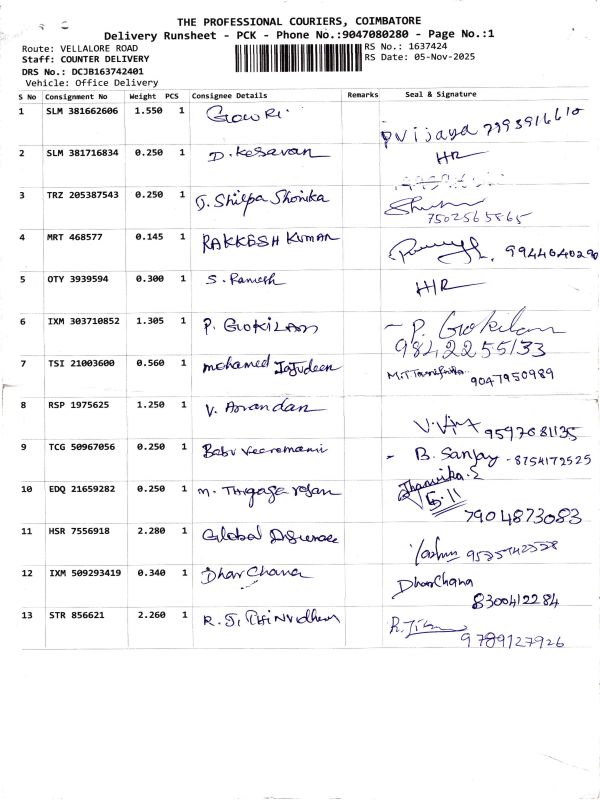 THE PROFESSIONAL COURIERS, COIMBATORE
Delivery Runsheet - PCK - Phone No.:9047080280 - Page No.:1
Route: VELLALORE ROAD
RS No.: 1637424
Staff: COUNTER DELIVERY
RS Date: 05-Nov-2025
DRS No.: DCJB163742401
Vehicle: Office Delivery
S No Consignment No Weight PCS Consignee Details Remarks Seal & Signature
1 SLM 381662606 1.550 1 Gowri P Vijaya 7993916610
2 SLM 381716834 0.250 1 D. Kesavan HR
3 TRZ 205387543 0.250 1 J. Shilpa Shonika 7502565865
4 MRT 468577 0.145 1 RAKKESH KUMAR 9944040290
5 OTY 3939594 0.300 1 S. Ramesh H/R
6 IXM 303710852 1.305 1 P. GOKILAN P. Gokilan
9842255133
7 TSI 21003600 0.560 1 mohamed Tajudeen 9047950989
8 RSP 1975625 1.250 1 V. Anandan 9597081135
9 TCG 50967056 0.250 1 Babu Veeramani B. Sanjay - 8754172525
10 EDQ 21659282 0.250 1 M. Thyagarajan
7904873083
11 HSR 7556918 2.280 1 Global
12 IXM 509293419 0.340 1 DharChana DharChana
8300412284
13 STR 856621 2.260 1 R. J.
9789127926